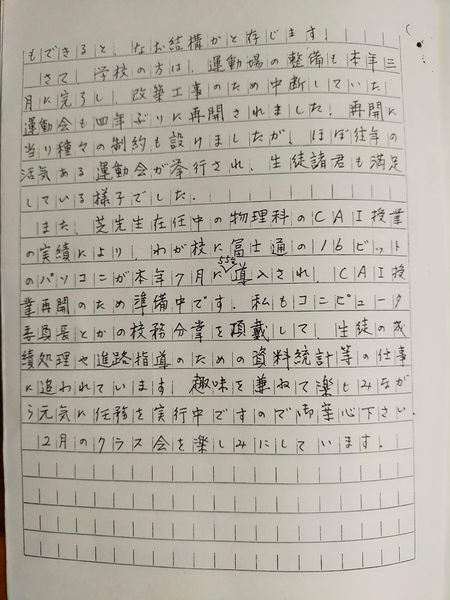 もできると、なお結構かと存じます!
さて、学校の方は、運動場の整備も本年三
月に完了し、改築工事のため中断していた
運動会も四年ぶりに再開されました。再開に
当り種々の制約も設けましたが、ほぼ往年の
活気ある運動会が挙行され、生徒諸君も満足
している様子でした。
また、芝先生在任中の物理科のCAI授業
の実績により、わが校に富士通の16ビット
のパソコンが本年7月に55台導入され、CAI授
業再開のため準備中です。私もコンピュータ
委員長とかの校務分掌を頂戴して、生徒の成
績処理や進路指導のための資料統計等の仕事
に追われています。趣味を兼ねて楽しみなが
ら元気に任務を実行中ですので御安心下さい。
12月のクラス会を楽しみにしています。